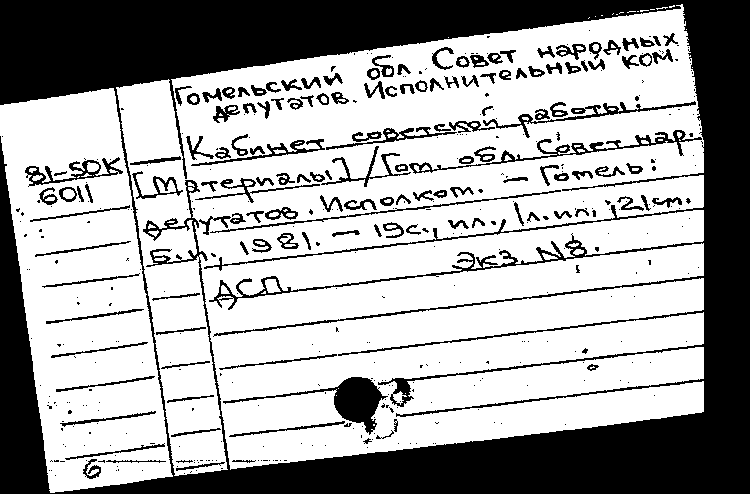 Гомельский обл. Совет народных
депутатов. Исполнительный ком.
Кабинет советской работы:
81-50К
6011
[Материалы] / Гом. обл. Совет нар.
депутатов. Исполком. — Гомель:
Б.и., 1981. — 19с., ил., 1л.ил.; 21см.
ДСП. Экз. N8.
6